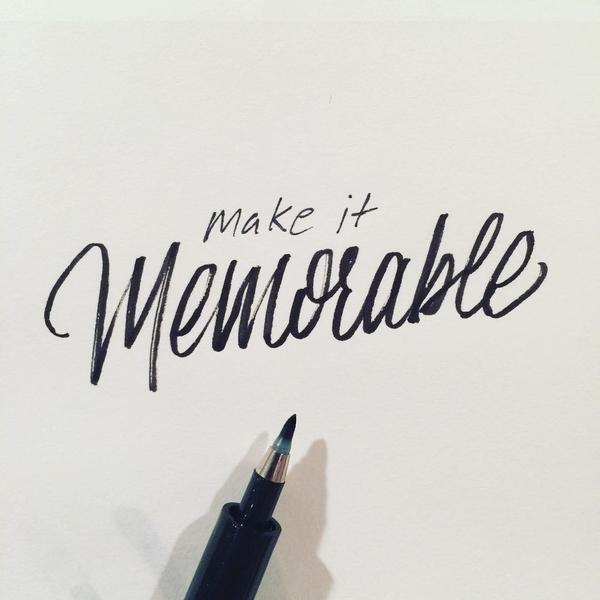 make it
Memorable